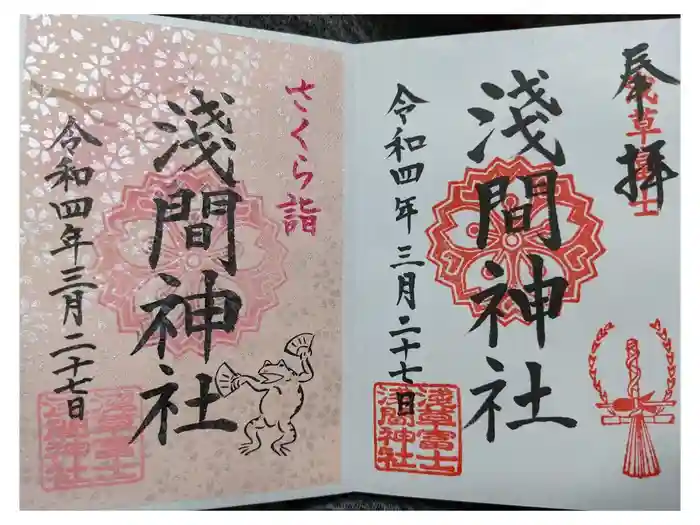 奉拝
浅草富士
淺間神社
令和四年三月二十七日
淺草富士
淺間神社
さくら詣
淺間神社
令和四年三月二十七日
淺草富士
淺間神社